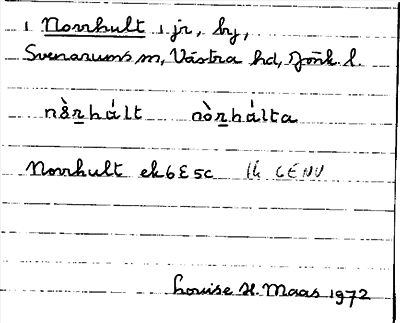 1 Norrhult 1 jr, by,
Svenarums sn, Västra hd, Jönk. l.
nòrhált nòrhálta
Norrhult ek 6E5c
Louise H. Maas 1972